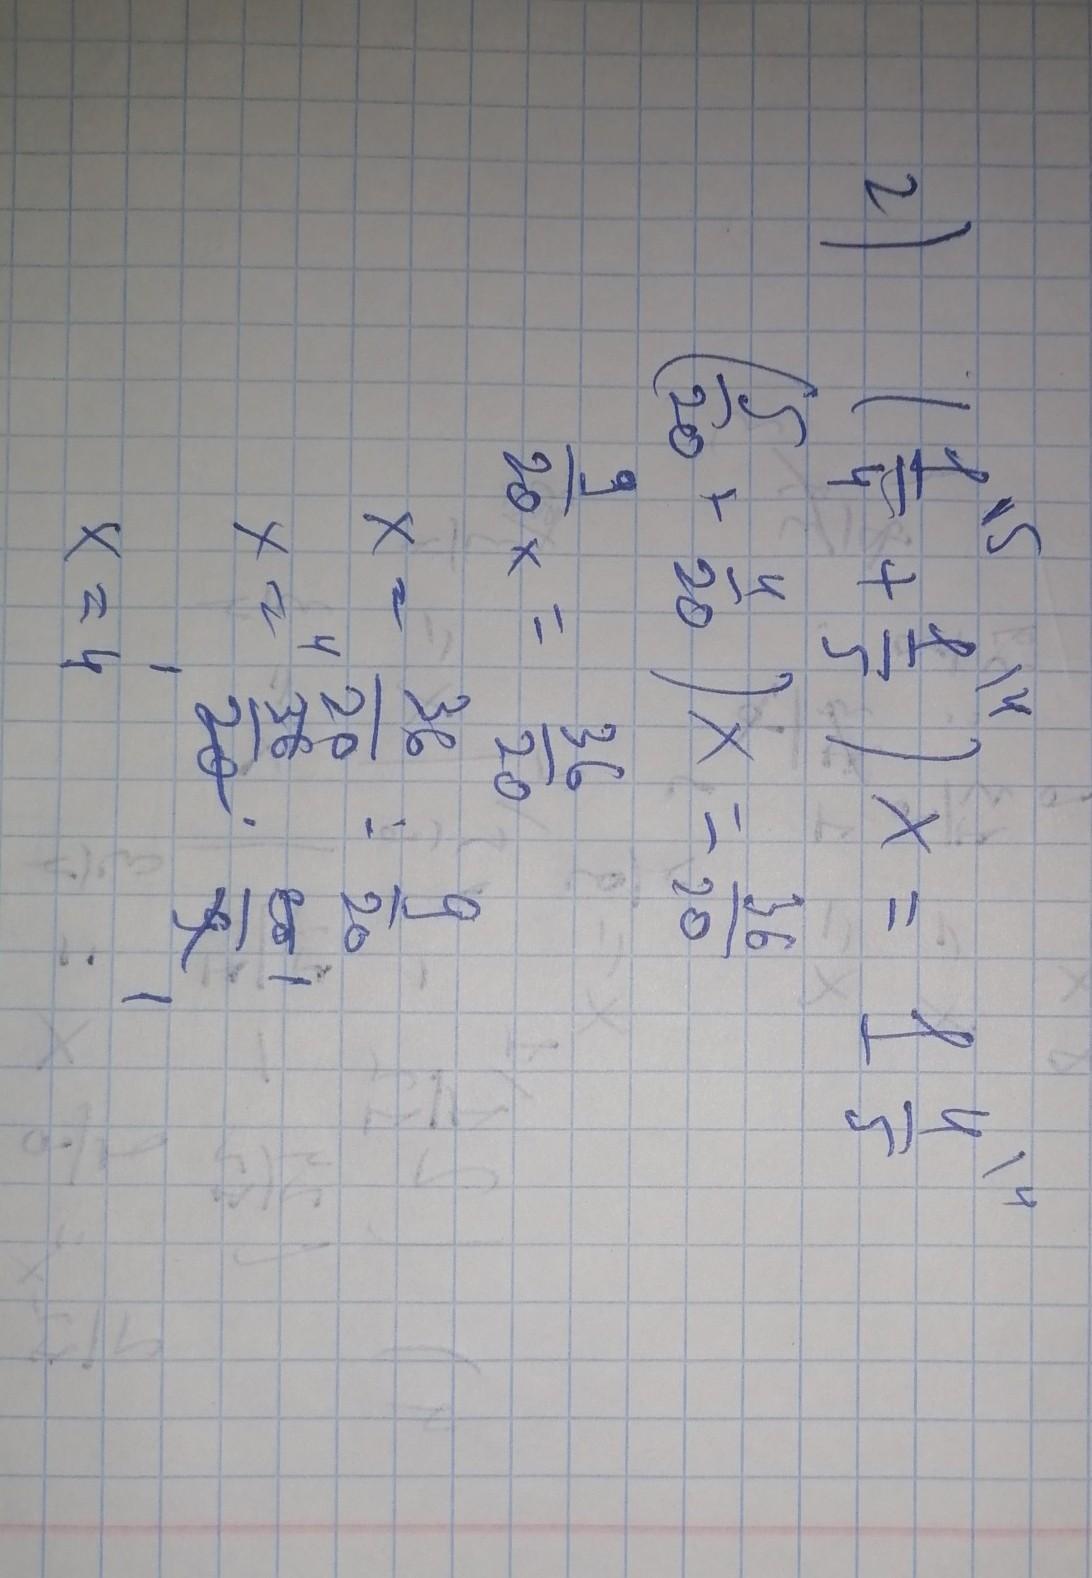 2) (1/4 \5 + 1/5 \4) x = 1 4/5 \4
(5/20 + 4/20) x = 36/20
9/20 x = 36/20
x = 36/20 : 9/20
x = 4 36/20 1 · 20 1/9 1
x = 4